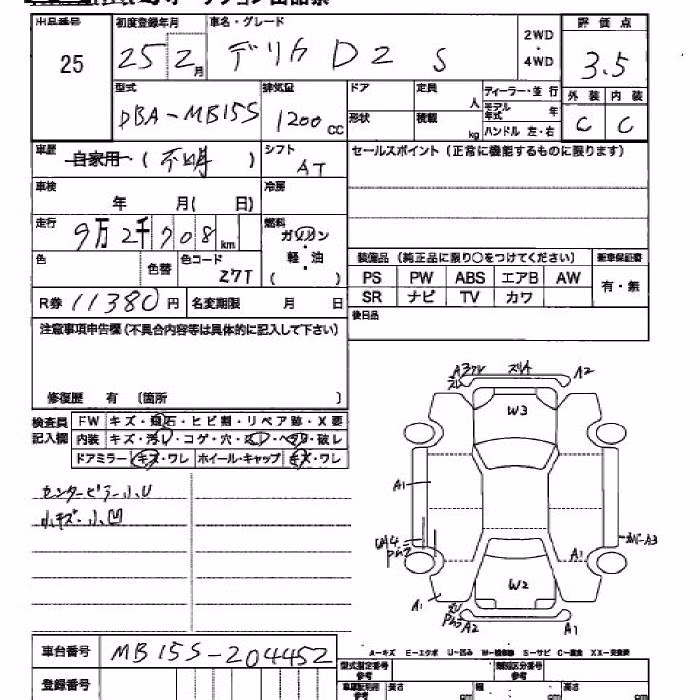 出品番号 初度登録年月 車名・グレード 2WD・4WD 評価点
25 25 2月 デリカ D2 S 3.5
型式 排気量 ドア 定員 ディーラー・並行 外装 内装
DBA-MB15S 1200cc 人 モデル年式 年 C C
形状 積載 kg ハンドル 左・右
車歴 自家用・(不明) シフト AT セールスポイント(正常に機能するものに限ります)
車検 年 月( 日) 冷房
走行 9万2千708km 燃料 ガソリン・軽・油 ( )
装備品 (純正品に限り○をつけてください) 新車保証書
色 色替 色コード Z7T PS PW ABS エアB AW 有・無
R券 11380円 名変期限 月 日 SR ナビ TV カワ
後日品
注意事項申告欄(不具合内容等は具体的に記入して下さい)
修復歴 有 〔箇所 〕
検査員記入欄 FW キズ・飛石・ヒビ割・リペア跡・X要
内装 キズ・汚レ・コゲ・穴・スレ・ヘタリ・破レ
ドアミラー キズ・ワレ ホイール・キャップ キズ・ワレ
センターピラー小U
小キズ・小凹
スリキ A2
W3
A1
U4
A1 カバーA3
W2
A1
A2 A1
A-キズ E-エクボ U-凹み W-補修跡 S-サビ C-腐食 XX-交換済
車台番号 MB15S-204452
型式指定番号 参考 類別区分番号 参考
登録番号 参考 長さ cm 幅 cm 高さ cm